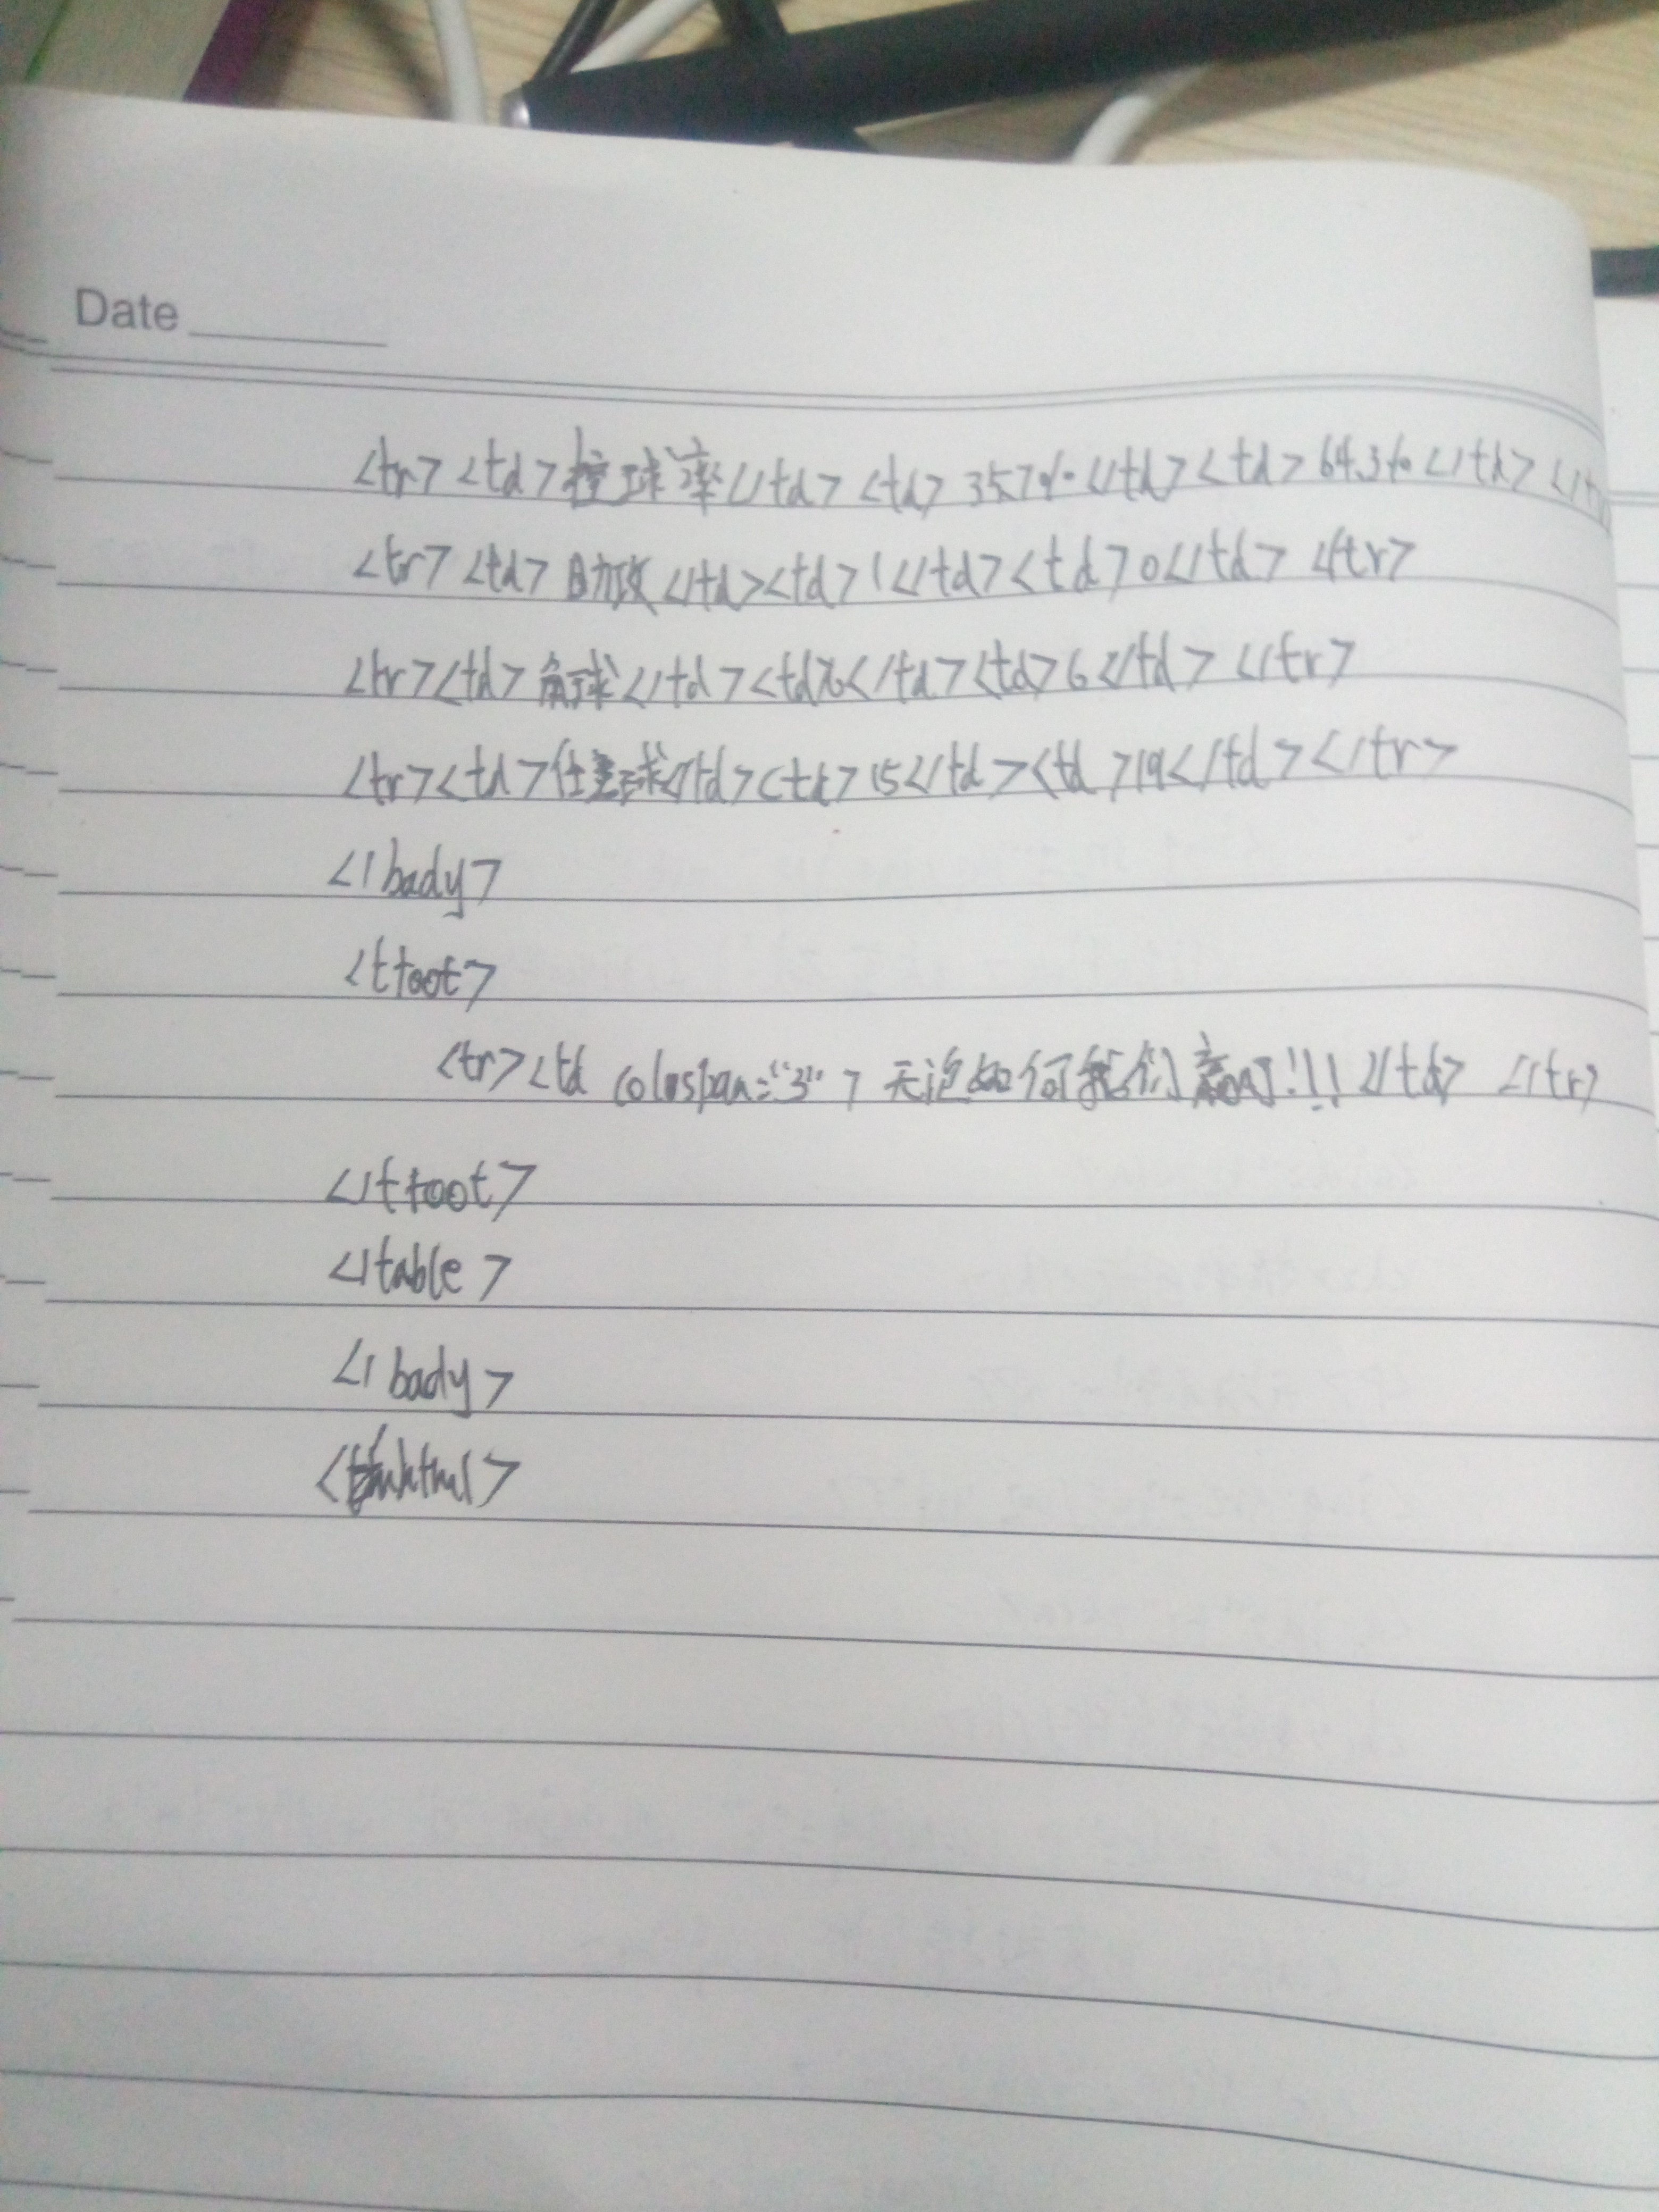 Date
<tr> <td>控球率</td> <td>35.7%</td> <td>64.3%</td> </tr
<tr> <td>助攻</td><td>1</td><td>0</td> </tr>
<tr><td>角球</td><td></td><td>6</td> </tr>
<tr><td>任意球</td><td>15</td><td>19</td></tr>
</bady>
<tfoot>
<tr><td colospan="3"> 无论如何我们赢啦!!! </td> </tr>
</tfoot>
</table>
</bady>
</html>